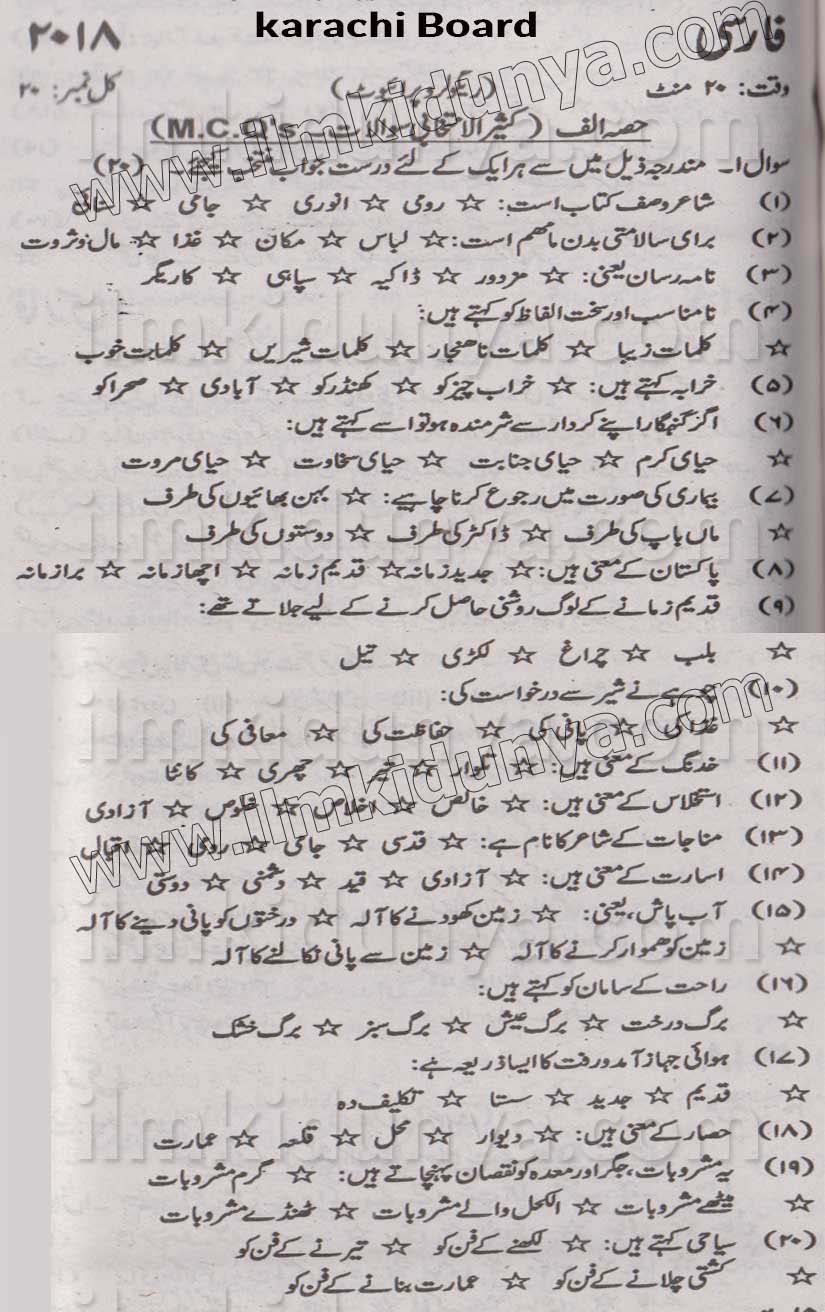 karachi Board
فارسی ۲۰۱۸
وقت: ۲۰ منٹ (ریگولر و پرائیوٹ) کل نمبر: ۲۰
حصہ الف (کثیر الانتخابی سوالات M.C.Q's)
سوال ۱۔ مندرجہ ذیل میں سے ہر ایک کے لئے درست جواب منتخب کیجئے۔ (۲۰)
(۱) شاعر وصف کتاب است: ☆ رومی ☆ انوری ☆ جامی ☆ سنائی
(۲) برای سالامتی بدن ما مھم است: ☆ لباس ☆ مکان ☆ غذا ☆ مال و ثروت
(۳) نامہ رسان یعنی: ☆ مزدور ☆ ڈاکیہ ☆ سپاہی ☆ کاریگر
(۴) نامناسب اور سخت الفاظ کو کہتے ہیں:
☆ کلمات زیبا ☆ کلمات ناھنجار ☆ کلمات شیریں ☆ کلمات خوب
(۵) خرابہ کہتے ہیں: ☆ خراب چیز کو ☆ کھنڈر کو ☆ آبادی ☆ صحرا کو
(۶) اگر گنہگار اپنے کردار سے شرمندہ ہو تو اسے کہتے ہیں:
☆ حیای کرم ☆ حیای جنابت ☆ حیای سخاوت ☆ حیای مروت
(۷) بیماری کی صورت میں رجوع کرنا چاہیے: ☆ بہن بھائیوں کی طرف
☆ ماں باپ کی طرف ☆ ڈاکٹر کی طرف ☆ دوستوں کی طرف
(۸) پاکستان کے معنی ہیں: ☆ جدید زمانہ ☆ قدیم زمانہ ☆ اچھا زمانہ ☆ برا زمانہ
(۹) قدیم زمانے کے لوگ روشنی حاصل کرنے کے لیے جلاتے تھے:
☆ بلب ☆ چراغ ☆ لکڑی ☆ تیل
(۱۰) چوہے نے شیر سے درخواست کی:
☆ غذا کی ☆ پانی کی ☆ حفاظت کی ☆ معافی کی
(۱۱) خدنگ کے معنی ہیں: ☆ تلوار ☆ تیر ☆ چھری ☆ کانٹا
(۱۲) استخلاس کے معنی ہیں: ☆ خالص ☆ اخلاص ☆ خلوص ☆ آزادی
(۱۳) مناجات کے شاعر کا نام ہے: ☆ قدسی ☆ جامی ☆ رومی ☆ اقبال
(۱۴) اسارت کے معنی ہیں: ☆ آزادی ☆ قید ☆ دشمنی ☆ دوستی
(۱۵) آب پاش، یعنی: ☆ زمین کھودنے کا آلہ ☆ درختوں کو پانی دینے کا آلہ
☆ زمین کو ھموار کرنے کا آلہ ☆ زمین سے پانی نکالنے کا آلہ
(۱۶) راحت کے سامان کو کہتے ہیں:
☆ برگ درخت ☆ برگ عیش ☆ برگ سبز ☆ برگ خشک
(۱۷) ہوائی جہاز آمد و رفت کا ایسا ذریعہ ہے:
☆ قدیم ☆ جدید ☆ سستا ☆ تکلیف دہ
(۱۸) حصار کے معنی ہیں: ☆ دیوار ☆ محل ☆ قلعہ ☆ عمارت
(۱۹) یہ مشروبات، جگر اور معدہ کو نقصان پہنچاتے ہیں: ☆ گرم مشروبات
☆ میٹھے مشروبات ☆ الکحل والے مشروبات ☆ ٹھنڈے مشروبات
(۲۰) سیاحی کہتے ہیں: ☆ لکھنے کے فن کو ☆ تیرنے کے فن کو
☆ کشتی چلانے کے فن کو ☆ عمارت بنانے کے فن کو
www.ilmkidunya.com
www.ilmkidunya.com
ilmkidunya.com
ilmkidunya.com
ilmkidunya.com
ilmkidunya.com
ilmkidunya.com
ilmkidunya.com